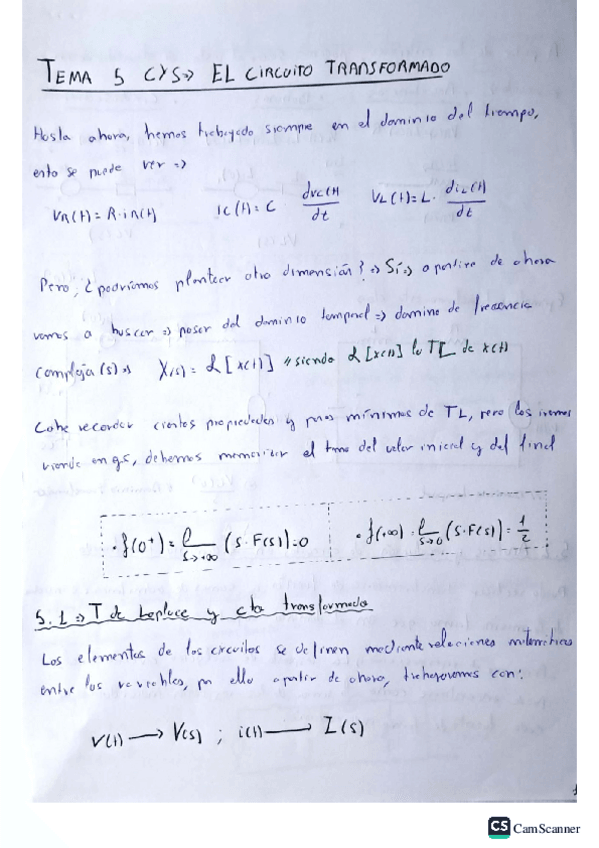 TEMA 5 CYS => EL CIRCUITO TRANSFORMADO
Hasta ahora, hemos trabajado siempre en el dominio del tiempo,
esto se puede ver =>
VR(t) = R·iR(t) iC(t) = C dvC(t)/dt VL(t) = L· diL(t)/dt
Pero, ¿podríamos plantear otra dimensión? => Sí => a partir de ahora
vamos a buscar => pasar del dominio temporal => dominio de frecuencia
compleja (s) => X(s) = L[x(t)] // siendo L[x(t)] la TL de x(t)
Cabe recordar ciertas propiedades y pares mínimos de TL, pero los iremos
viendo en ejs, debemos memorizar el tma del valor inicial y del final
· f(0⁺) = l s→+∞ (s·F(s)) = 0 · f(+∞) = l s→0 (s·F(s)) = 1/2
5.1 => T de Laplace y cto transformado
Los elementos de los circuitos se definen mediante relaciones matemáticas
entre las variables, por ello a partir de ahora, trabajaremos con:
v(t) → V(s) ; i(t) → I(s)
CS CamScanner